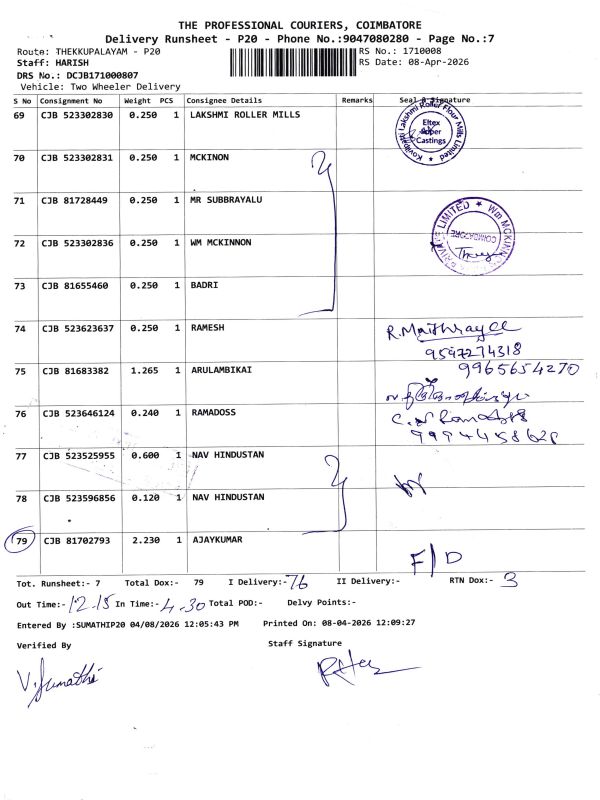 THE PROFESSIONAL COURIERS, COIMBATORE
Delivery Runsheet - P20 - Phone No.:9047080280 - Page No.:7
Route: THEKKUPALAYAM - P20
RS No.: 1710008
Staff: HARISH
RS Date: 08-Apr-2026
DRS No.: DCJB171000807
Vehicle: Two Wheeler Delivery
S No Consignment No Weight PCS Consignee Details Remarks Seal & Signature
69 CJB 523302830 0.250 1 LAKSHMI ROLLER MILLS
Kovilpatti Lakshmi Roller Flour Mills Limited
Eltex
Super
Castings
70 CJB 523302831 0.250 1 MCKINON
71 CJB 81728449 0.250 1 MR SUBBRAYALU
72 CJB 523302836 0.250 1 WM MCKINNON
COIMBATORE
73 CJB 81655460 0.250 1 BADRI
74 CJB 523623637 0.250 1 RAMESH
R.Maithrayee
9547274318
75 CJB 81683382 1.265 1 ARULAMBIKAI
9965654270
76 CJB 523646124 0.240 1 RAMADOSS
9994458628
77 CJB 523525955 0.600 1 NAV HINDUSTAN
78 CJB 523596856 0.120 1 NAV HINDUSTAN
79 CJB 81702793 2.230 1 AJAYKUMAR
F/D
Tot. Runsheet:- 7 Total Dox:- 79 I Delivery:- 76 II Delivery:- RTN Dox:- 3
Out Time:- 12.15 In Time:- 4.30 Total POD:- Delvy Points:-
Entered By :SUMATHIP20 04/08/2026 12:05:43 PM Printed On: 08-04-2026 12:09:27
Verified By Staff Signature
V.Sumathi